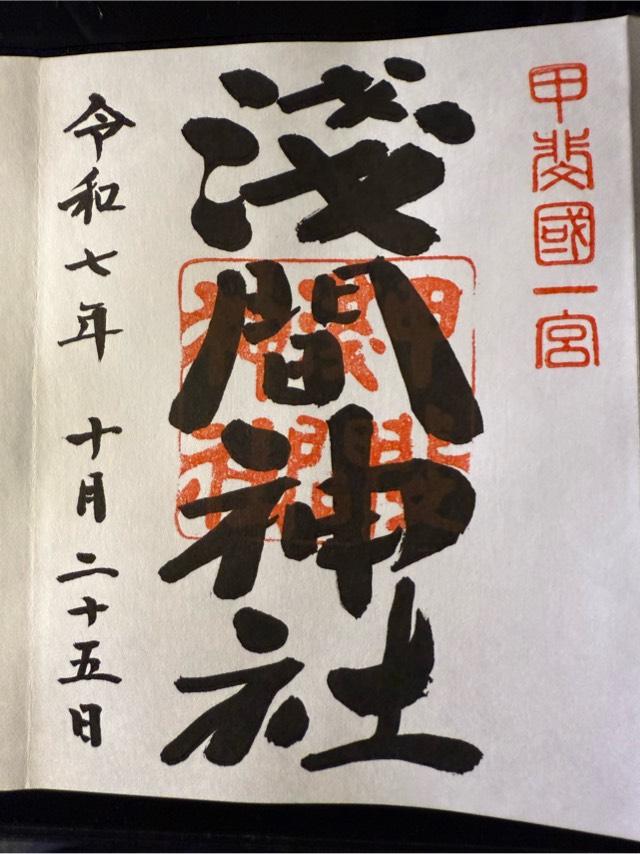 甲斐國一宮
淺間神社
令和七年 十月二十五日